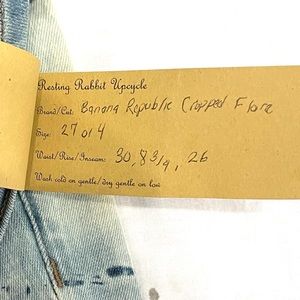 Resting Rabbit Upcycle
Brand/Cut: Banana Republic Cropped Flare
Size: 27 or 4
Waist/Rise/Inseam: 30, 8 3/4, 26
Wash cold on gentle/dry gentle on low